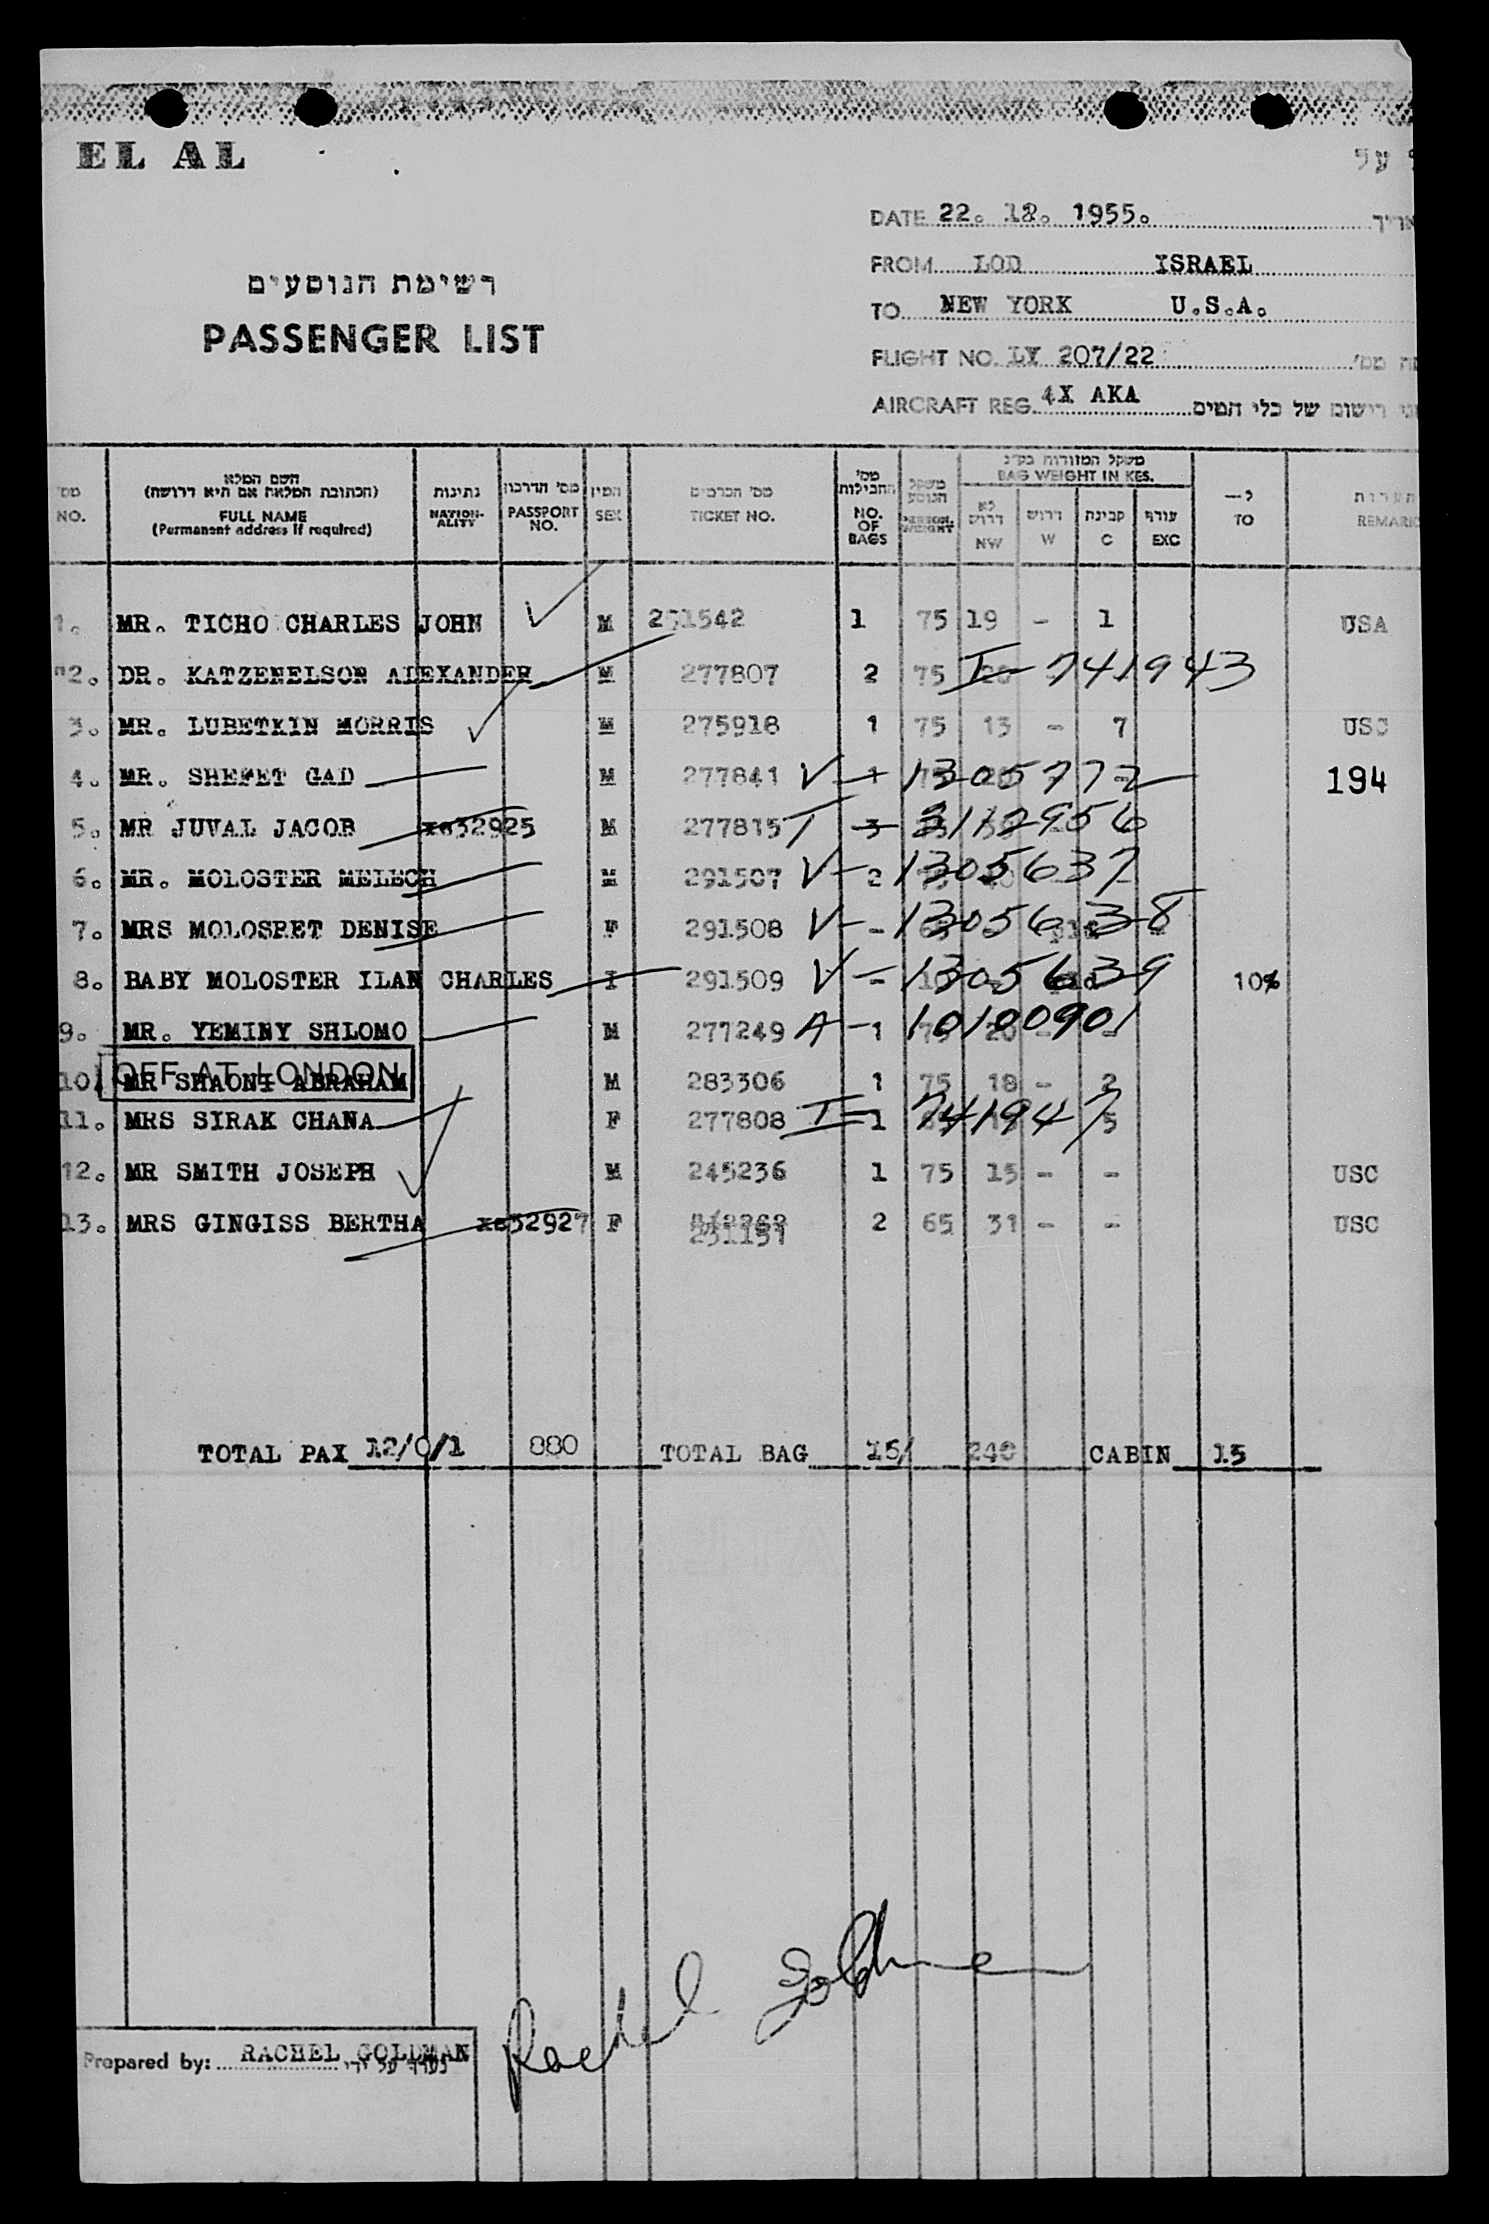 EL AL
DATE 22. 12. 1955.
FROM LOD ISRAEL
רשימת הנוסעים
TO NEW YORK U.S.A.
PASSENGER LIST
FLIGHT NO. LY 207/22
AIRCRAFT REG. 4X AKA רישום של כלי הטיס
משקל המזודות בק"ג
BAG WEIGHT IN KES.
מס' השם המלא (הכתובת המלאה אם היא דרושה) נתינות מס' הדרכון המין מס' הכרטיס מס' החבילות משקל הנוסע לא דרוש דרוש קבינה עודף ל—
NO. FULL NAME (Permanent address if required) NATION-ALITY PASSPORT NO. SEX TICKET NO. NO. OF BAGS NW W C EXC TO REMARK
1. MR. TICHO CHARLES JOHN M 1542 1 75 19 - 1 USA
2. DR. KATZENELSON ALEXANDER M 277807 2 75 I- 741943
3. MR. LUBETKIN MORRIS M 275918 1 75 13 - 7 USC
4. MR. SHEFET GAD M 277841 V- 1305772 194
5. MR JUVAL JACOB 32925 M 277815 T- 3 3112956
6. MR. MOLOSTER MELECH M 291507 V- 2 1305637
7. MRS MOLOSRET DENISE F 291508 V- - 1305638
8. BABY MOLOSTER ILAN CHARLES I 291509 V- - 1305639 10%
9. MR. YEMINY SHLOMO M 277249 A- 1 1010090
OFF AT LONDON
10. MR SHAONI ABRAHAM M 283306 1 75 18 - 2
11. MRS SIRAK CHANA F 277808 I- 1 741947 5
12. MR SMITH JOSEPH M 245236 1 75 15 - - USC
13. MRS GINGISS BERTHA 32927 F 2 65 31 - - USC
TOTAL PAX 12/0/1 880 TOTAL BAG 15/ 240 CABIN 15
Rachel Goldman
Prepared by: RACHEL GOLDMAN נערך על ידי